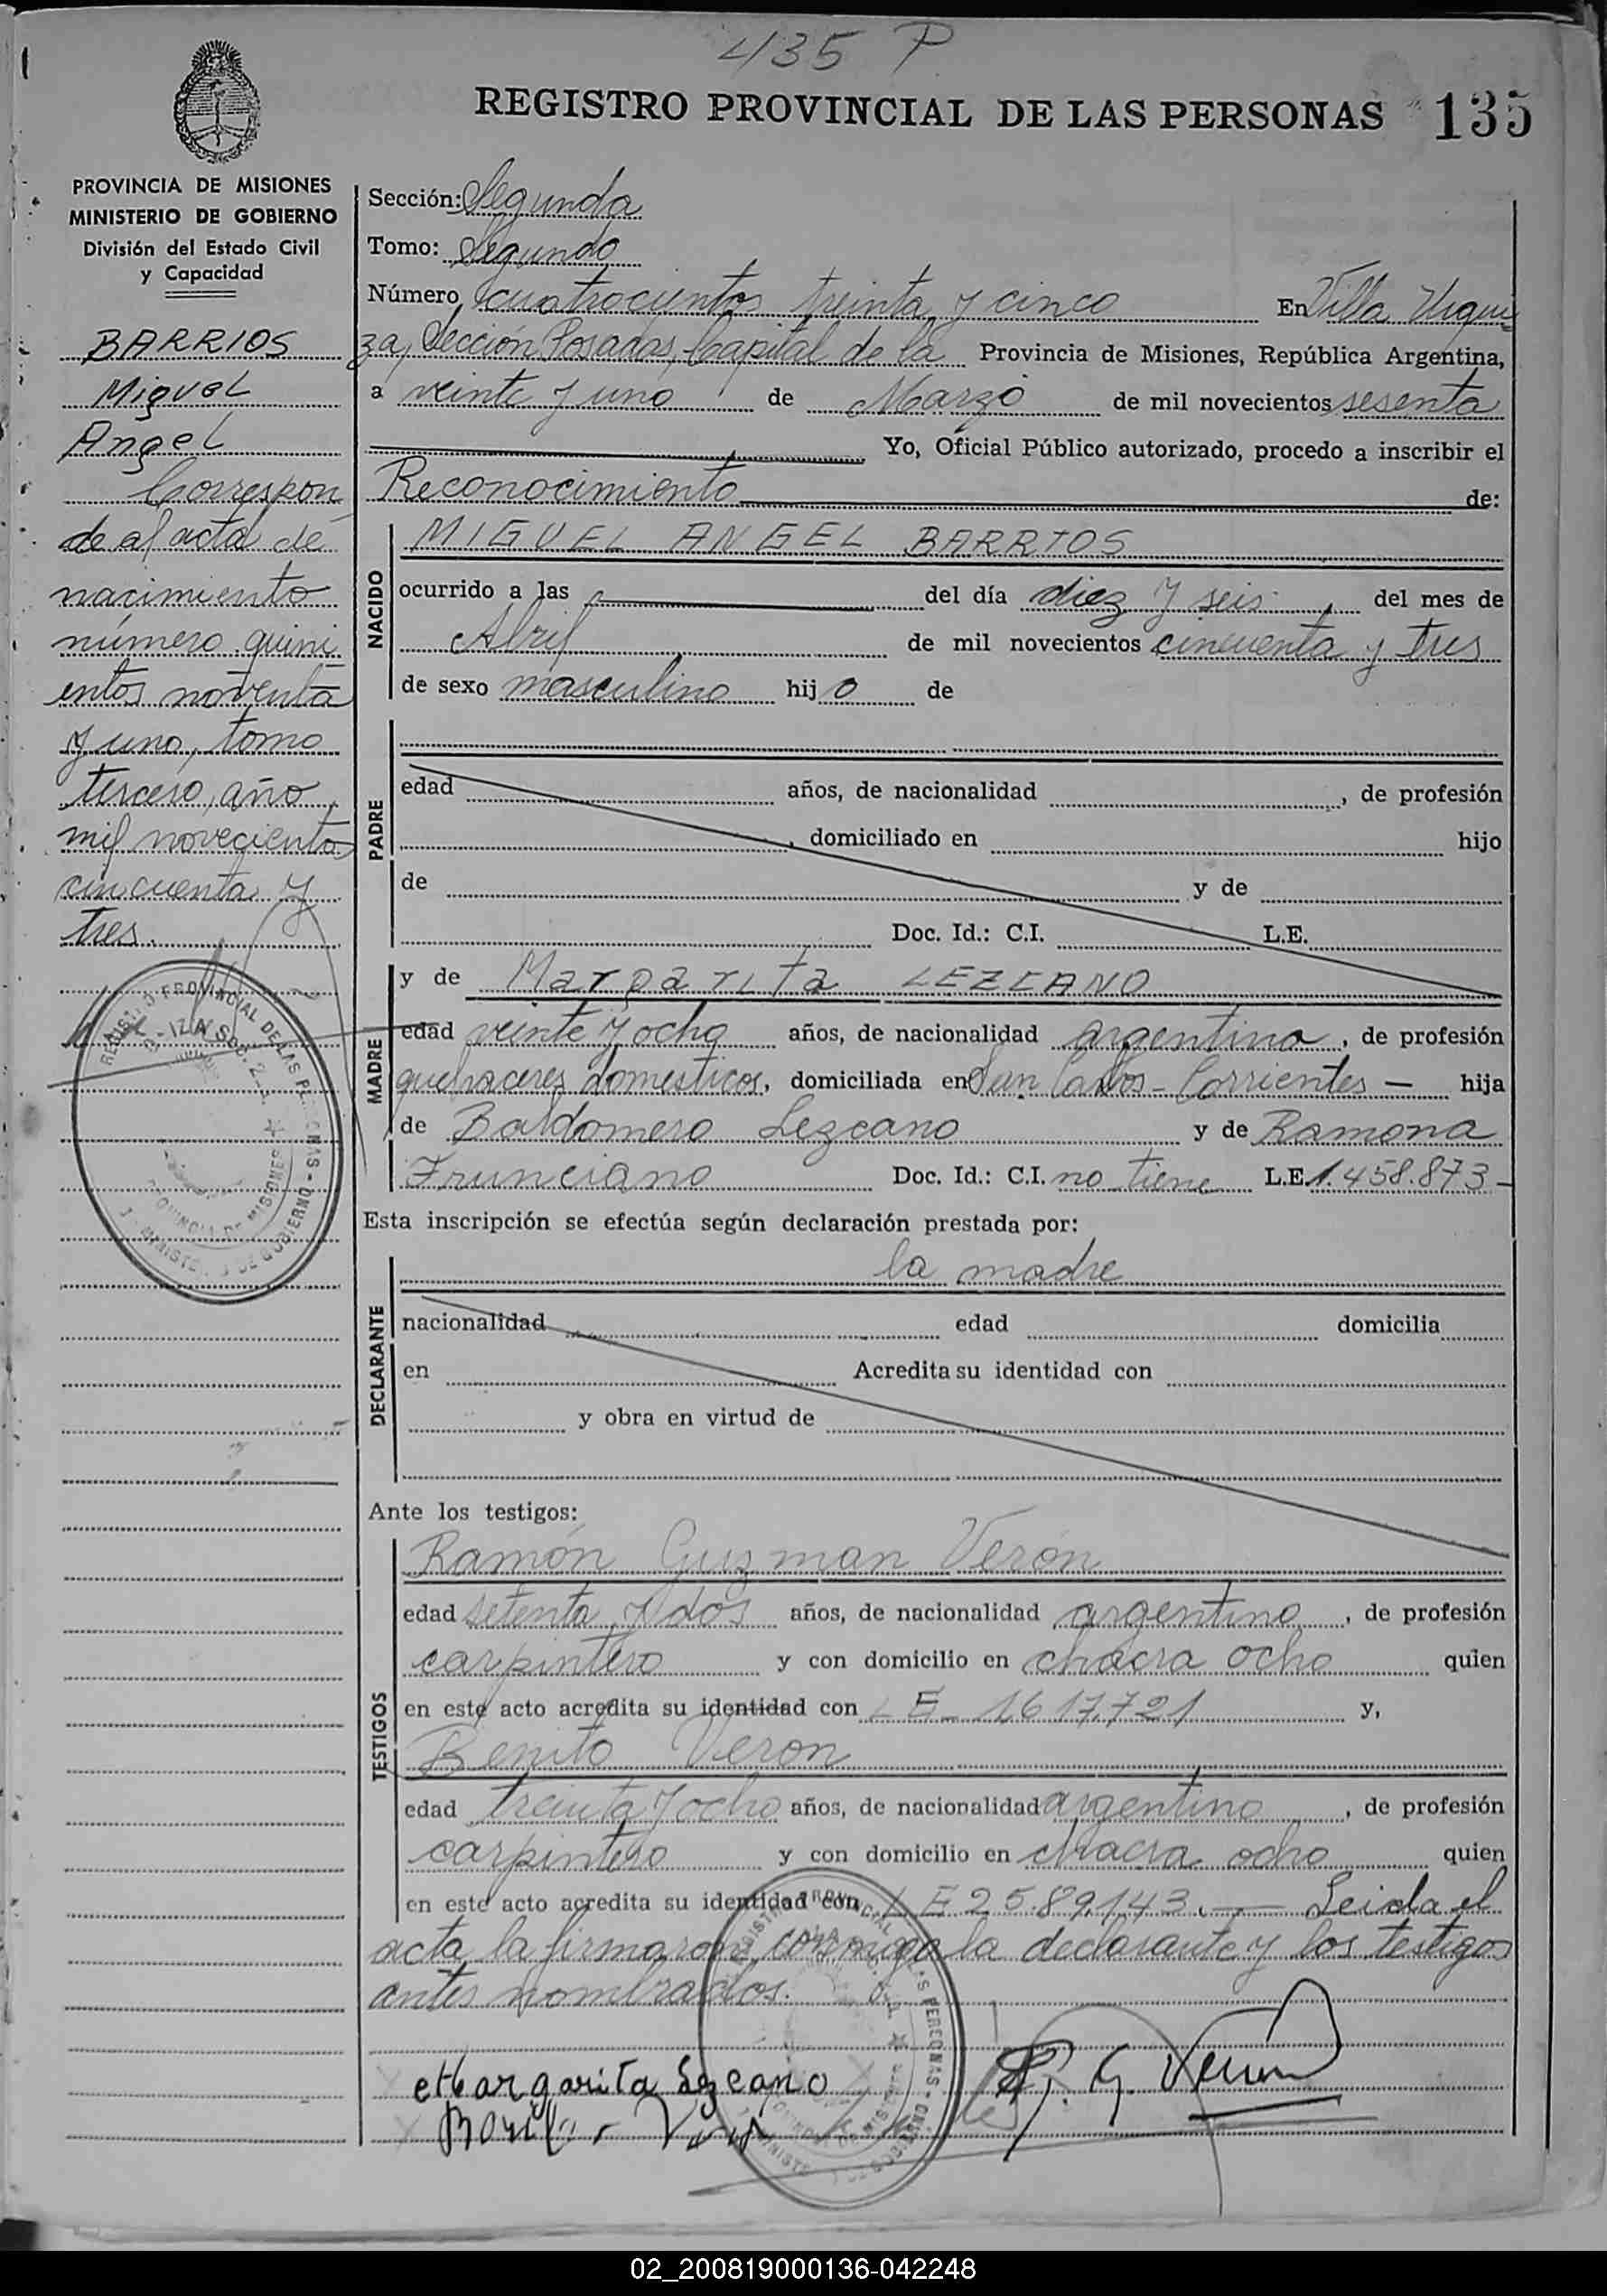 435 P
REGISTRO PROVINCIAL DE LAS PERSONAS 135
PROVINCIA DE MISIONES
MINISTERIO DE GOBIERNO
División del Estado Civil
y Capacidad
BARRIOS
Miguel
Angel
Correspon
de al acta de
nacimiento
número quini
entos noventa
y uno, tomo
tercero, año
mil novecientos
cincuenta y
tres.
Sección: Segunda
Tomo: Segundo
Número cuatrocientos treinta y cinco En Villa Urqui
za, Sección Posadas, Capital de la Provincia de Misiones, República Argentina,
a veinte y uno de Marzo de mil novecientos sesenta
Yo, Oficial Público autorizado, procedo a inscribir el
Reconocimiento de:
NACIDO
MIGUEL ANGEL BARRIOS
ocurrido a las del día diez y seis del mes de
Abril de mil novecientos cincuenta y tres
de sexo masculino hijo de
PADRE
edad años, de nacionalidad , de profesión
, domiciliado en hijo
de y de
Doc. Id.: C.I. L.E.
MADRE
y de Margarita LEZCANO
edad veinte y ocho años, de nacionalidad argentina, de profesión
quehaceres domesticos, domiciliada en San Carlos - Corrientes - hija
de Baldomero Lezcano y de Ramona
Frunciano Doc. Id.: C.I. no tiene L.E. 1.458.873-
Esta inscripción se efectúa según declaración prestada por:
DECLARANTE
la madre
nacionalidad edad domicilia
en Acredita su identidad con
y obra en virtud de
Ante los testigos:
TESTIGOS
Ramón Guzman Verón
edad setenta y dos años, de nacionalidad argentino, de profesión
carpintero y con domicilio en chacra ocho quien
en este acto acredita su identidad con L E - 1.617.721 y,
Benito Veron
edad treinta y ocho años, de nacionalidad argentino, de profesión
carpintero y con domicilio en chacra ocho quien
en este acto acredita su identidad con L E 2.589.143.- Leida el
acta la firmaron conmigo la declarante y los testigos
antes nombrados.
Margarita Lezcano
R. G. Veron
02_200819000136-042248